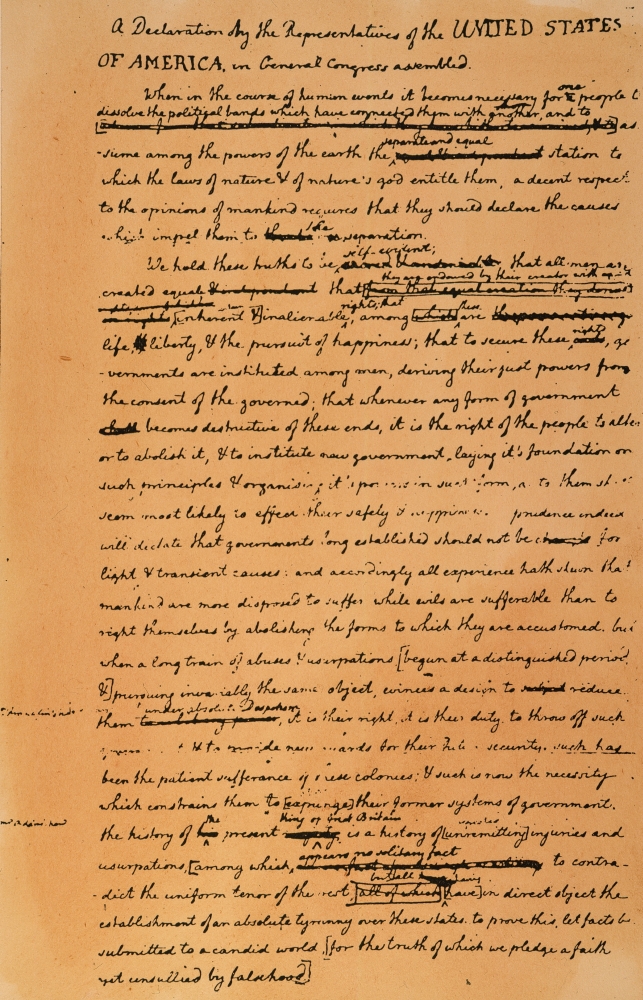 A Declaration by the Representatives of the UNITED STATES
OF AMERICA, in General Congress assembled.
When in the course of human events it becomes necessary for one people to
dissolve the political bands which have connected them with another, and to
as
separate and equal
-sume among the powers of the earth the station to
which the laws of nature & of nature's god entitle them, a decent respect
to the opinions of mankind requires that they should declare the causes
which impel them to the separation.
self-evident;
We hold these truths to be that all men are
they are endowed by their creator with
created equal & independent that [from that equal creation they derive
rights; that these
[inherent &] inalienable, among which are
rights
life, liberty, & the pursuit of happiness; that to secure these, go
-vernments are instituted among men, deriving their just powers from
the consent of the governed; that whenever any form of government
shall becomes destructive of these ends, it is the right of the people to alter
or to abolish it, & to institute new government, laying it's foundation on
such principles & organising it's powers in such form, as to them shall
seem most likely to effect their safety & happiness. prudence indeed
will dictate that governments long established should not be changed for
light & transient causes: and accordingly all experience hath shewn that
mankind are more disposed to suffer while evils are sufferable than to
right themselves by abolishing the forms to which they are accustomed. but
when a long train of abuses & usurpations [begun at a distinguished period,
&] pursuing invariably the same object, evinces a design to reduce
under absolute Despotism
them, it is their right, it is their duty, to throw off such
& to provide new guards for their future security. such has
been the patient sufferance of these colonies; & such is now the necessity
which constrains them to [expunge] their former systems of government.
the king of Great Britain
the history of present is a history of [unremitting] injuries and
appears no solitary fact
usurpations, [among which, to contra-
but all
dict the uniform tenor of the rest, [all of which] [have] in direct object the
establishment of an absolute tyranny over these states. to prove this, let facts be
submitted to a candid world, [for the truth of which we pledge a faith
yet unsullied by falsehood]